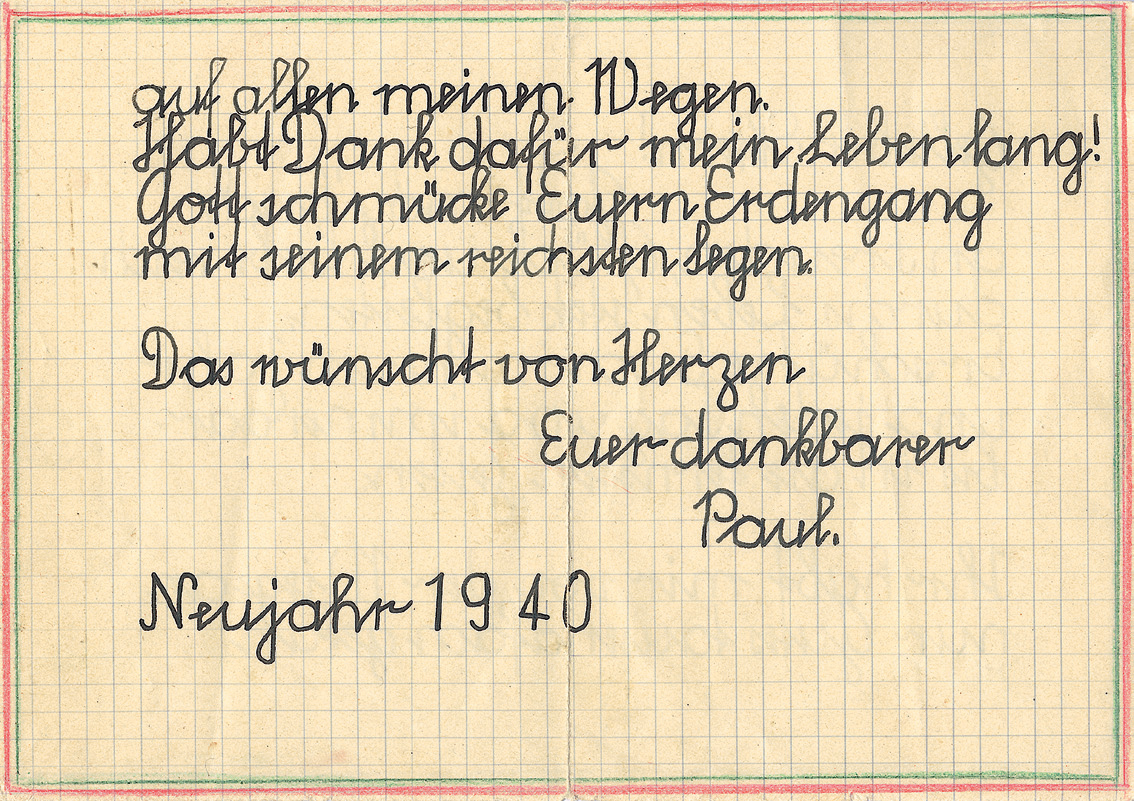 auf allen meinen Wegen.
Habt Dank dafür mein Leben lang!
Gott schmücke Euern Erdengang
mit seinem reichsten Segen.
Das wünscht von Herzen
Euer dankbarer
Paul.
Neujahr 1940